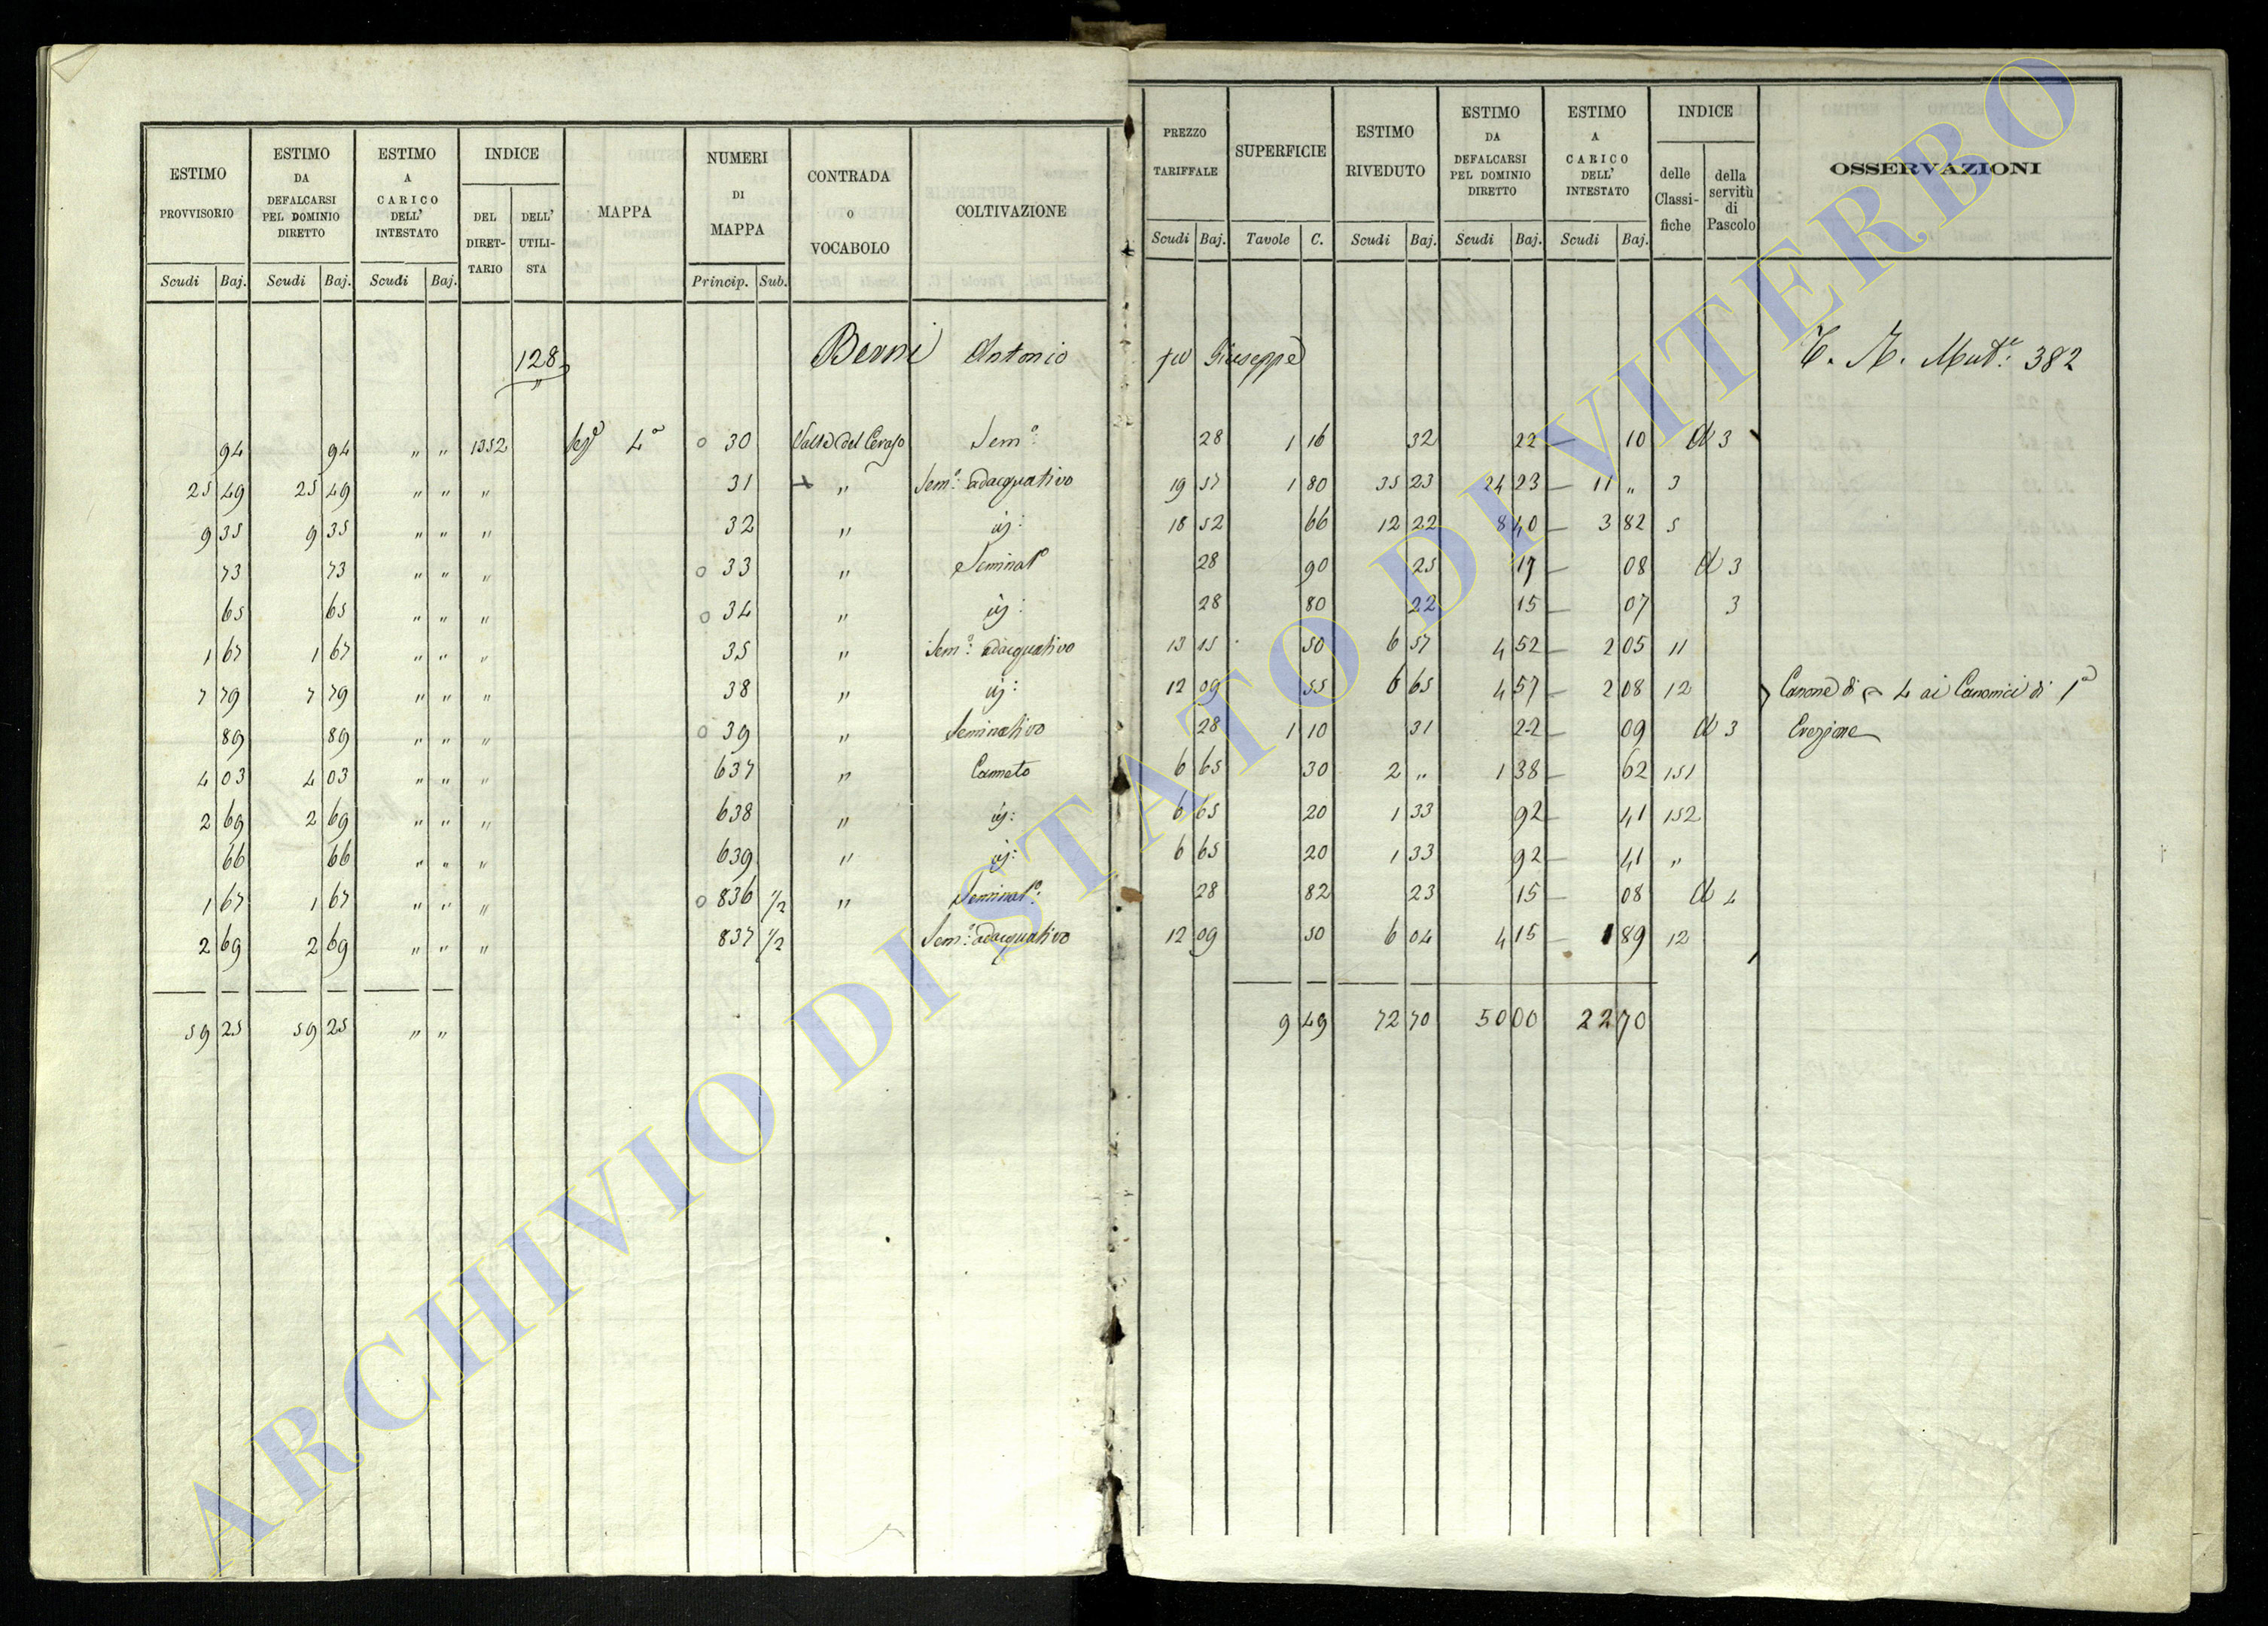 ESTIMO PROVVISORIO | ESTIMO DA DEFALCARSI PEL DOMINIO DIRETTO | ESTIMO A CARICO DELL' INTESTATO | INDICE | MAPPA | NUMERI DI MAPPA | CONTRADA O VOCABOLO | COLTIVAZIONE | PREZZO TARIFFALE | SUPERFICIE | ESTIMO RIVEDUTO | ESTIMO DA DEFALCARSI PEL DOMINIO DIRETTO | ESTIMO A CARICO DELL' INTESTATO | INDICE | OSSERVAZIONI
DEL DIRETTARIO | DELL' UTILISTA | delle Classifiche | della servitù di Pascolo
Scudi Baj. | Scudi Baj. | Scudi Baj. | Princip. Sub. | Scudi Baj. | Tavole C. | Scudi Baj. | Scudi Baj. | Scudi Baj.
128 Berni Antonio fu Giuseppe 382
94 | 94 | " " | 1352 | Sezе 4a | 30 | Valle del Ceraso | Semo: | 28 | 1 16 | 32 | 22 | 10 | d 3
25 49 | 25 49 | " " | " | 31 | " | Semo: adacquativo | 19 57 | 1 80 | 35 23 | 24 23 | 11 " | 3
9 35 | 9 35 | " " | " | 32 | " | id: | 18 52 | 66 | 12 22 | 8 40 | 3 82 | 5
73 | 73 | " " | " | 33 | " | Seminato | 28 | 90 | 25 | 17 | 08 | d 3
65 | 65 | " " | " | 34 | " | id: | 28 | 80 | 22 | 15 | 07 | 3
1 67 | 1 67 | " " | " | 35 | " | Semo: adacquativo | 13 15 | 50 | 6 57 | 4 52 | 2 05 | 11
7 79 | 7 79 | " " | " | 38 | " | id: | 12 09 | 55 | 6 65 | 4 57 | 2 08 | 12 | Canone di 4 ai Canonici di 1a
89 | 89 | " " | " | 39 | " | Seminativo | 28 | 1 10 | 31 | 22 | 09 | d 3 | Erezione
4 03 | 4 03 | " " | " | 637 | " | Canneto | 6 65 | 30 | 2 " | 1 38 | 62 | 151
2 69 | 2 69 | " " | " | 638 | " | id: | 6 65 | 20 | 1 33 | 92 | 41 | 152
66 | 66 | " " | " | 639 | " | id: | 6 65 | 20 | 1 33 | 92 | 41 | "
1 67 | 1 67 | " " | " | 836 1/2 | " | Seminato: | 28 | 82 | 23 | 15 | 08 | d 4
2 69 | 2 69 | " " | " | 837 1/2 | Semo: adacquativo | 12 09 | 50 | 6 04 | 4 15 | 1 89 | 12
59 25 | 59 25 | " " | 9 49 | 72 70 | 50 00 | 22 70
ARCHIVIO DI STATO DI VITERBO